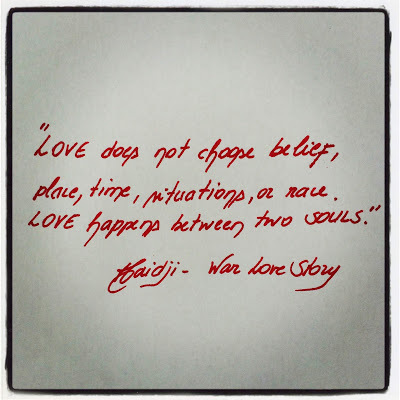 "LOVE does not choose belief,
place, time, situations, or race.
LOVE happens between two SOULS."
Haidji - War Love Story